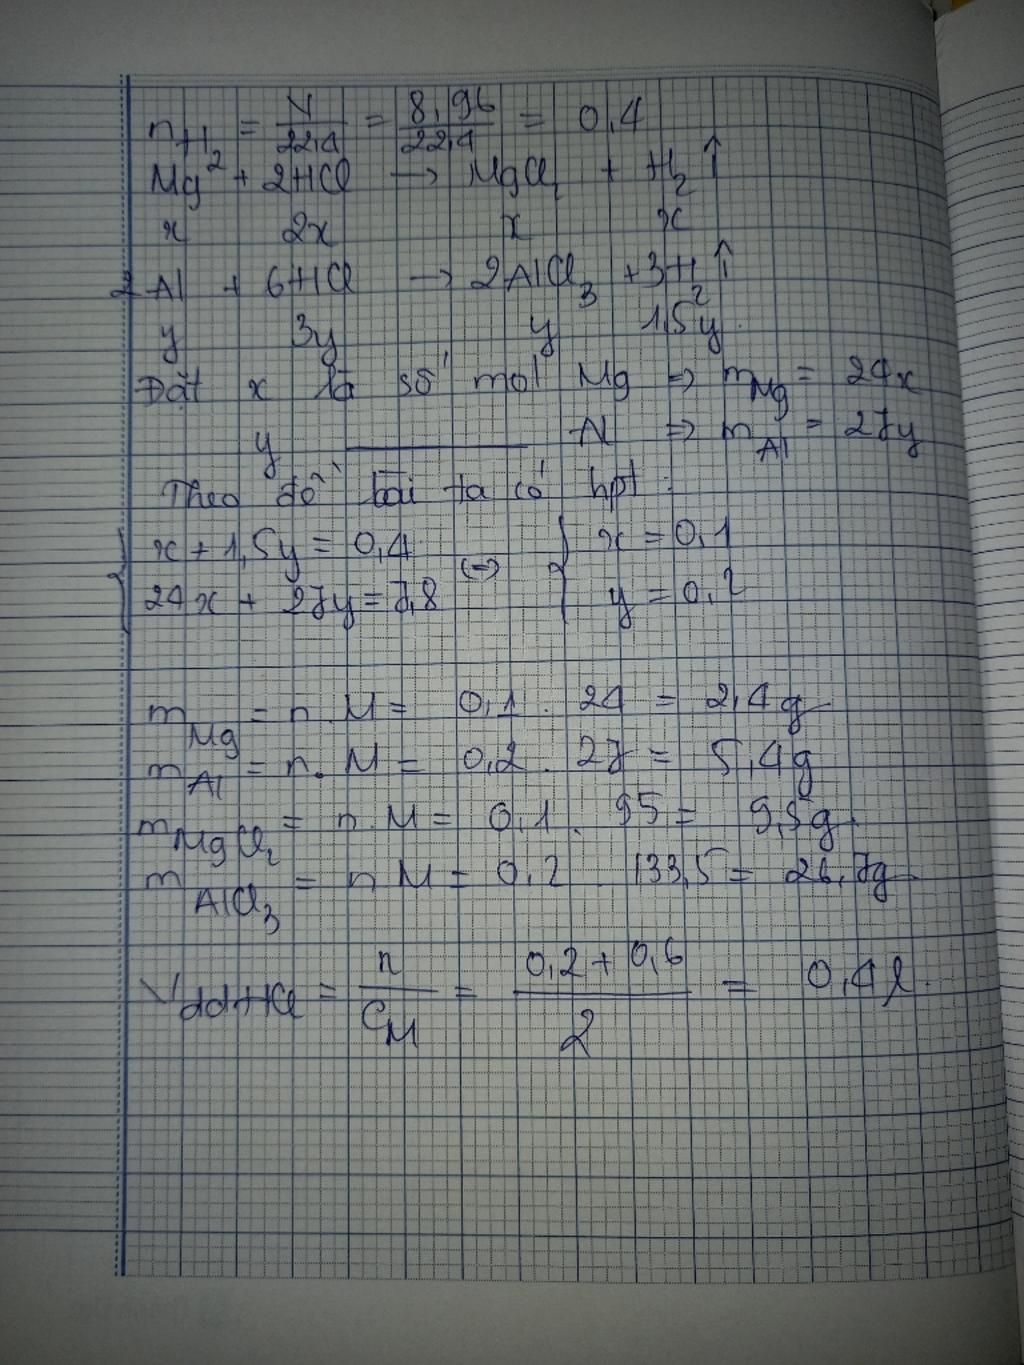 n_H₂ = V/22,4 = 8,96/22,4 = 0,4
Mg + 2HCl → MgCl₂ + H₂ ↑
x 2x x x
2Al + 6HCl → 2AlCl₃ + 3H₂ ↑
y 3y y 1,5y
Đặt x là số mol Mg => m_Mg = 24x
y ———— Al => m_Al = 27y
Theo đề bài ta có hpt:
{ x + 1,5y = 0,4 <=> { x = 0,1
24x + 27y = 7,8 y = 0,2
m_Mg = n.M = 0,1 . 24 = 2,4g
m_Al = n.M = 0,2 . 27 = 5,4g
m_MgCl₂ = n.M = 0,1 . 95 = 9,5g
m_AlCl₃ = n M = 0,2 . 133,5 = 26,7g
V_ddHCl = n/C_M = (0,2 + 0,6)/2 = 0,4 l.